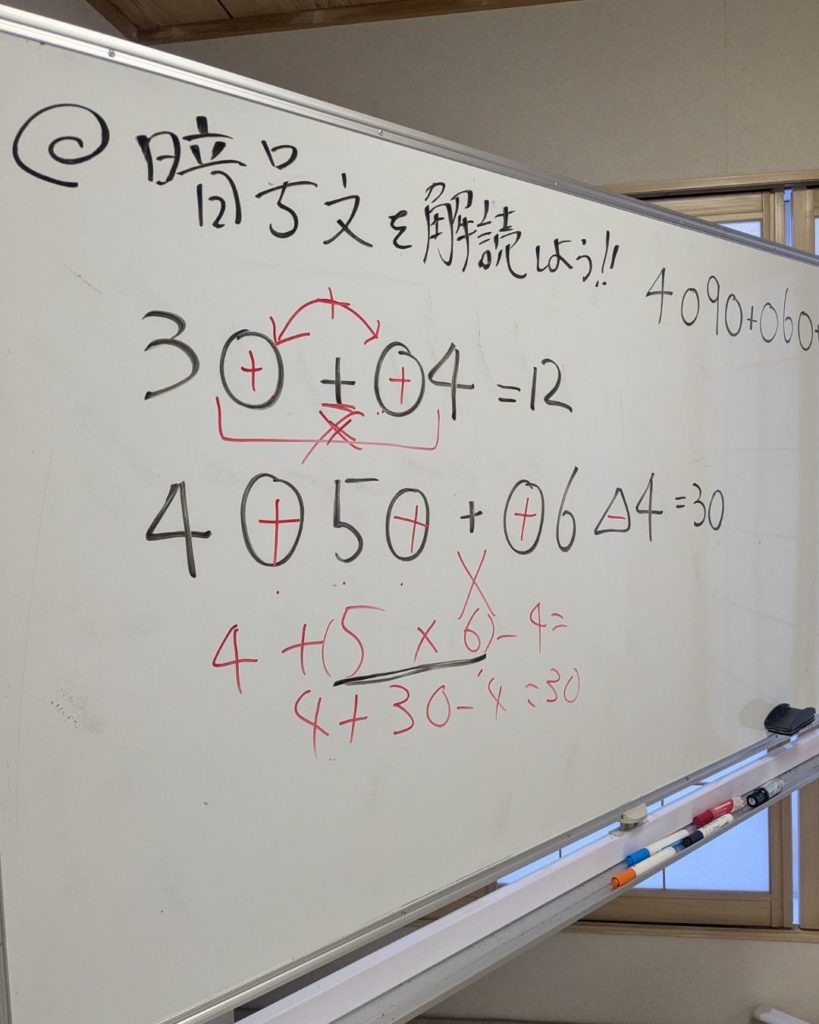 @暗号文を解読しよう!!
4090+060+
3⊕+⊕4=12
×
4⊕5⊕+⊕6△4=30
×
4+(5×6)-4=
4+30-4=30